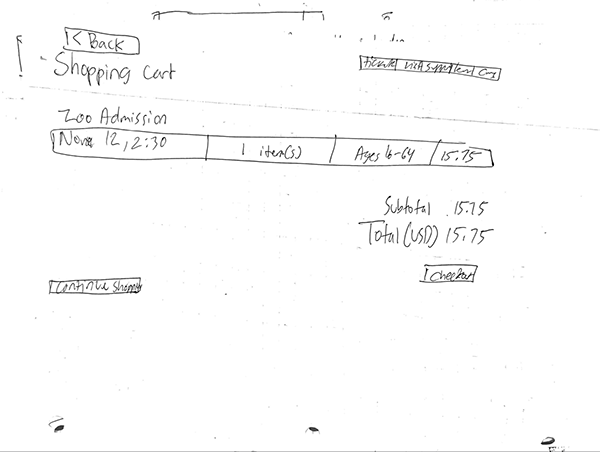 < Back
Shopping Cart
Zoo Admission
Nov 12, 2:30 1 item(s) Ages 16-64 15.75
Subtotal 15.75
Total (USD) 15.75
Checkout
Continue Shopping